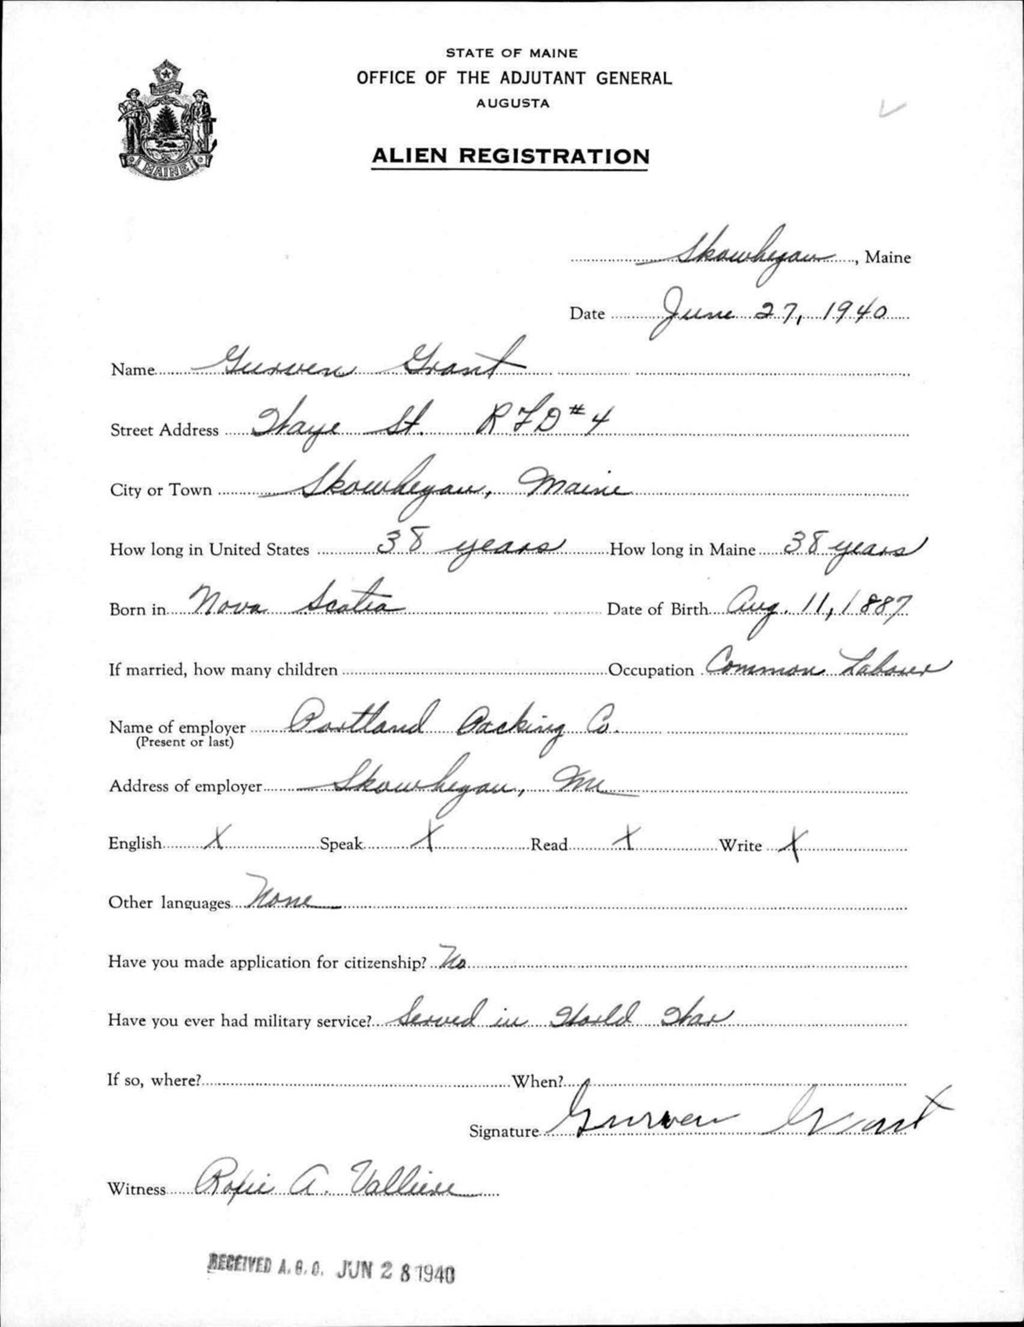 STATE OF MAINE
OFFICE OF THE ADJUTANT GENERAL
AUGUSTA
ALIEN REGISTRATION
MAINE
Skowhegan, Maine
Date June 27, 1940
Name Gurven Grant
Street Address St. RFD #4
City or Town Skowhegan, Maine
How long in United States 38 years How long in Maine 38 years
Born in Nova Scotia Date of Birth Aug. 11, 1887
If married, how many children Occupation Common Laborer
Name of employer Portland Packing Co.
(Present or last)
Address of employer Skowhegan, Me
English X Speak X Read X Write X
Other languages None
Have you made application for citizenship? No
Have you ever had military service? Served in World War
If so, where? When?
Signature Gurven Grant
Witness A. Valliere
RECEIVED A.G.O. JUN 28 1940